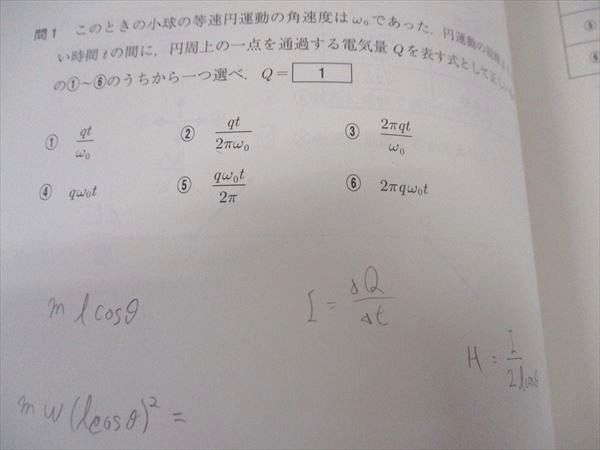 問1 このときの小球の等速円運動の角速度は ω₀ であった. 円運動の周期より
い時間 t の間に, 円周上の一点を通過する電気量 Q を表す式として正しい
の①~⑥のうちから一つ選べ. Q = 1
① qt/ω₀ ② qt/2πω₀ ③ 2πqt/ω₀
④ qω₀t ⑤ qω₀t/2π ⑥ 2πqω₀t
m l cosθ
I = ΔQ/Δt
H = I/2lcosθ
m w (l cosθ)² =
⑤
⑥